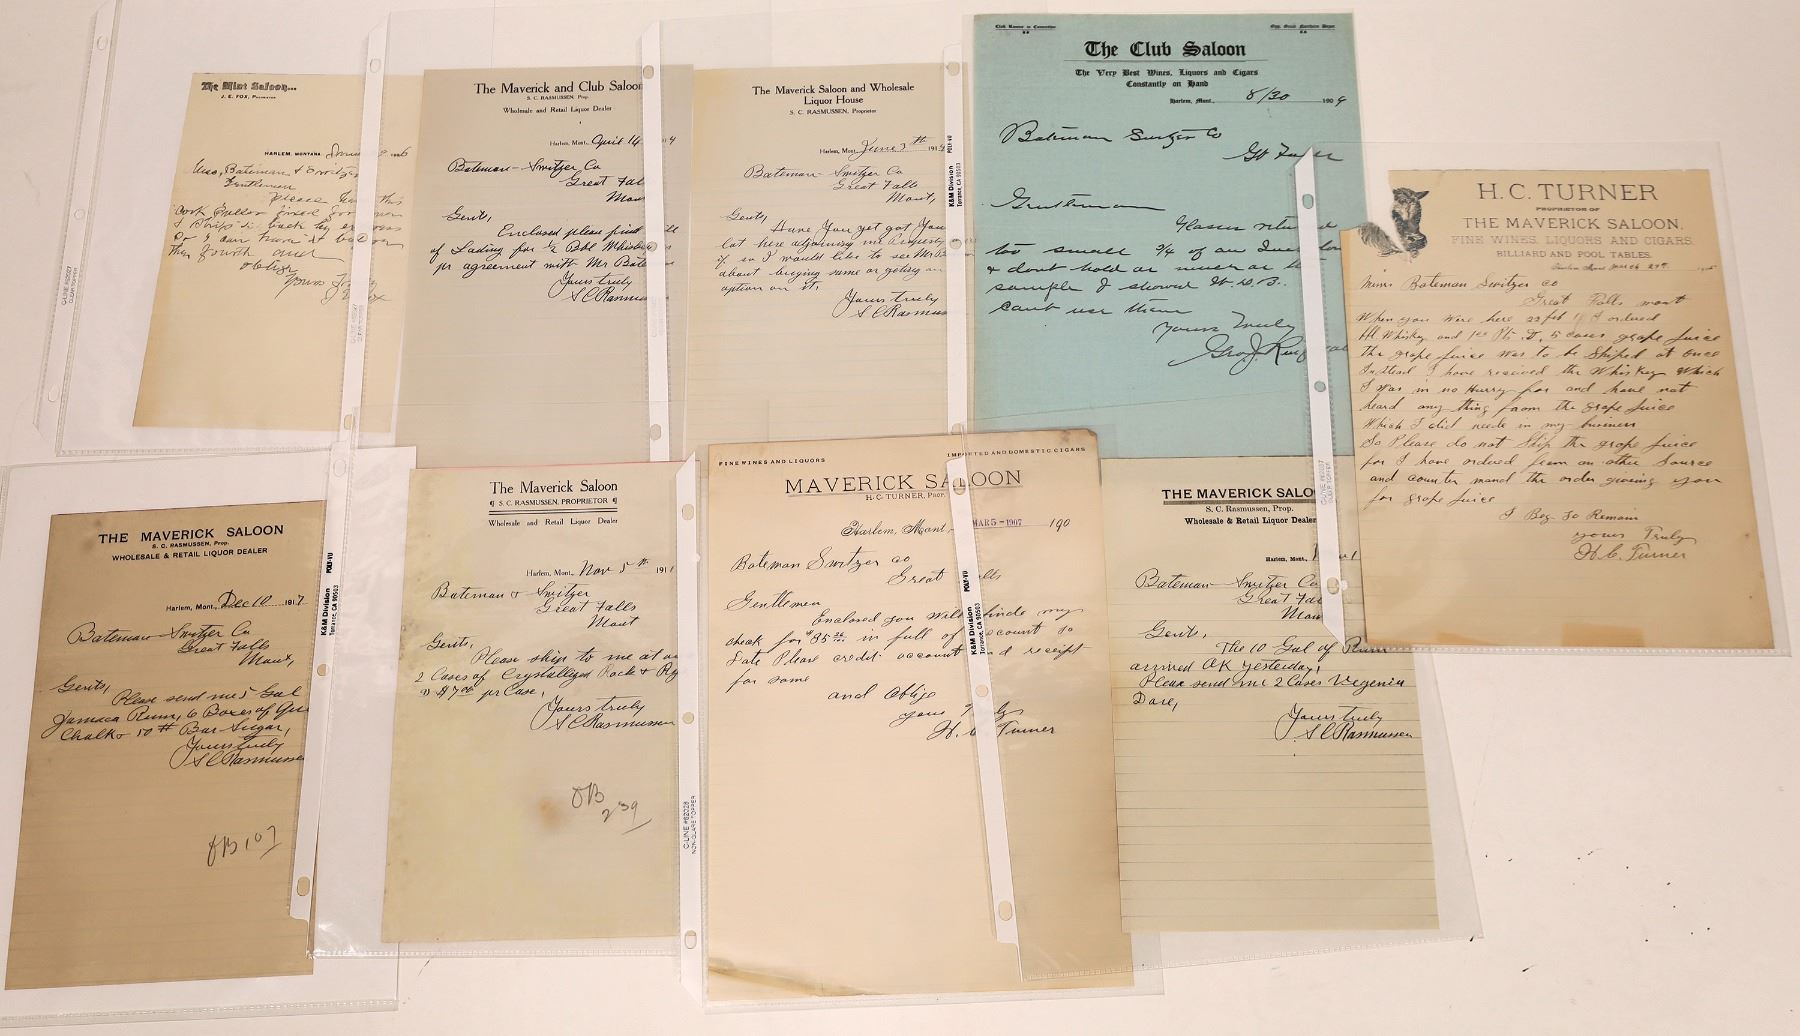 The Mint Saloon...
J. E. FOX, PROPRIETOR
HARLEM, MONTANA
Bateman & Switzer
Gentlemen
Please this
back by express
So I can have it before
the fourth and
oblige
Yours
Fox
The Maverick and Club Saloon
S. C. RASMUSSEN, Prop.
Wholesale and Retail Liquor Dealer
Harlem, Mont. April 14 4
Bateman-Switzer Co
Great Fal
Mon
Gents,
Enclosed please find
of Lading for 1/2 Bbl Whis
pr agreement with Mr Bate
Yours truly
S C Rasmus
The Maverick Saloon and Wholesale
Liquor House
S. C. RASMUSSEN, Proprietor
Harlem, Mont. June 3th 191
Bateman-Switzer Co
Great Falls
Mont,
Gents,
Have You got You
lot here adjoining me
if so I would like to see Mr B
about buying same or geting an
option on it,
Yours truly
S C Rasmus
Club Rooms in Connection
Opp. Great Northern Depot
The Club Saloon
The Very Best Wines, Liquors and Cigars
Constantly on Hand
Harlem, Mont., 8/30 190
Bateman Switzer Co
Gt Falls
Gentlemen
Glasses
too small 3/4 of an
& dont hold as much as
sample I showed W. D. B.
cant use them
Yours Truly
Geo. J.
H. C. TURNER
PROPRIETOR OF
THE MAVERICK SALOON,
FINE WINES, LIQUORS AND CIGARS.
BILLIARD AND POOL TABLES.
Harlem Mont March 27th
Bateman Switzer Co
Great Falls mont
When you were here 22 feb I ordered
Whiskey and 5 cases grape juice
the grape juice was to be Shiped at once
Instead I have received the Whiskey Which
I was in no Hurry for and have not
heard any thing from the grape juice
Which I did neede in my business
So Please do not Ship the grape juice
for I have ordered from an other Source
and counter mand the order giving you
for grape juice
I Beg to Remain
yours Truly
H. C. Turner
THE MAVERICK SALOON
S. C. RASMUSSEN, Prop.
WHOLESALE & RETAIL LIQUOR DEALER
Harlem, Mont., Dec 10 1917
Bateman-Switzer Co
Great Falls
Mont,
Gents,
Please send me 5 Gal
Jamaca Rum, 6 Boxes of Que
Chalk & 50# Bar Sugar,
Yours truly
S C Rasmussen
OB 107
The Maverick Saloon
¶ S. C. RASMUSSEN, PROPRIETOR ¶
Wholesale and Retail Liquor Dealer
Harlem, Mont., Nov 5th 1911
Bateman & Switzer
Great Falls
Mont
Gents,
Please ship to me at on
2 Cases of Crystallized Rock & Rye
@ $7.00 pr Case,
Yours truly
S C Rasmussen
OB
239
FINE WINES AND LIQUORS
IMPORTED AND DOMESTIC CIGARS
MAVERICK SALOON
H. C. TURNER, PROP.
Harlem, Mont., MAR 5-1907 190
Bateman Switzer co
Great alls
Gentlemen
Enclosed you will finde my
check for $85 in full of account to
date Please credit account and receipt
for same
and oblige
yours Truly
H. C. Turner
THE MAVERICK SALOO
S. C. Rasmussen, Prop.
Wholesale & Retail Liquor Dealer
Harlem, Mont.,
Bateman-Switzer Co
Great Fal
Mon
Gents,
The 10 Gal of Rum
arrived OK yesterday,
Please send me 2 Cases Vegenia
Dare,
Yours truly
S C Rasmussen
K&M Division POLY-VU
Torrance, CA 90503
K&M Division POLY-VU
Torrance, CA 90503
K&M Division POLY-VU
Torrance, CA 90503
C-LINE #62028
NON-GLARE TOPPER
C-LINE #62027
CLEAR TOPPER
C-LINE #62027
CLEAR TOPPER